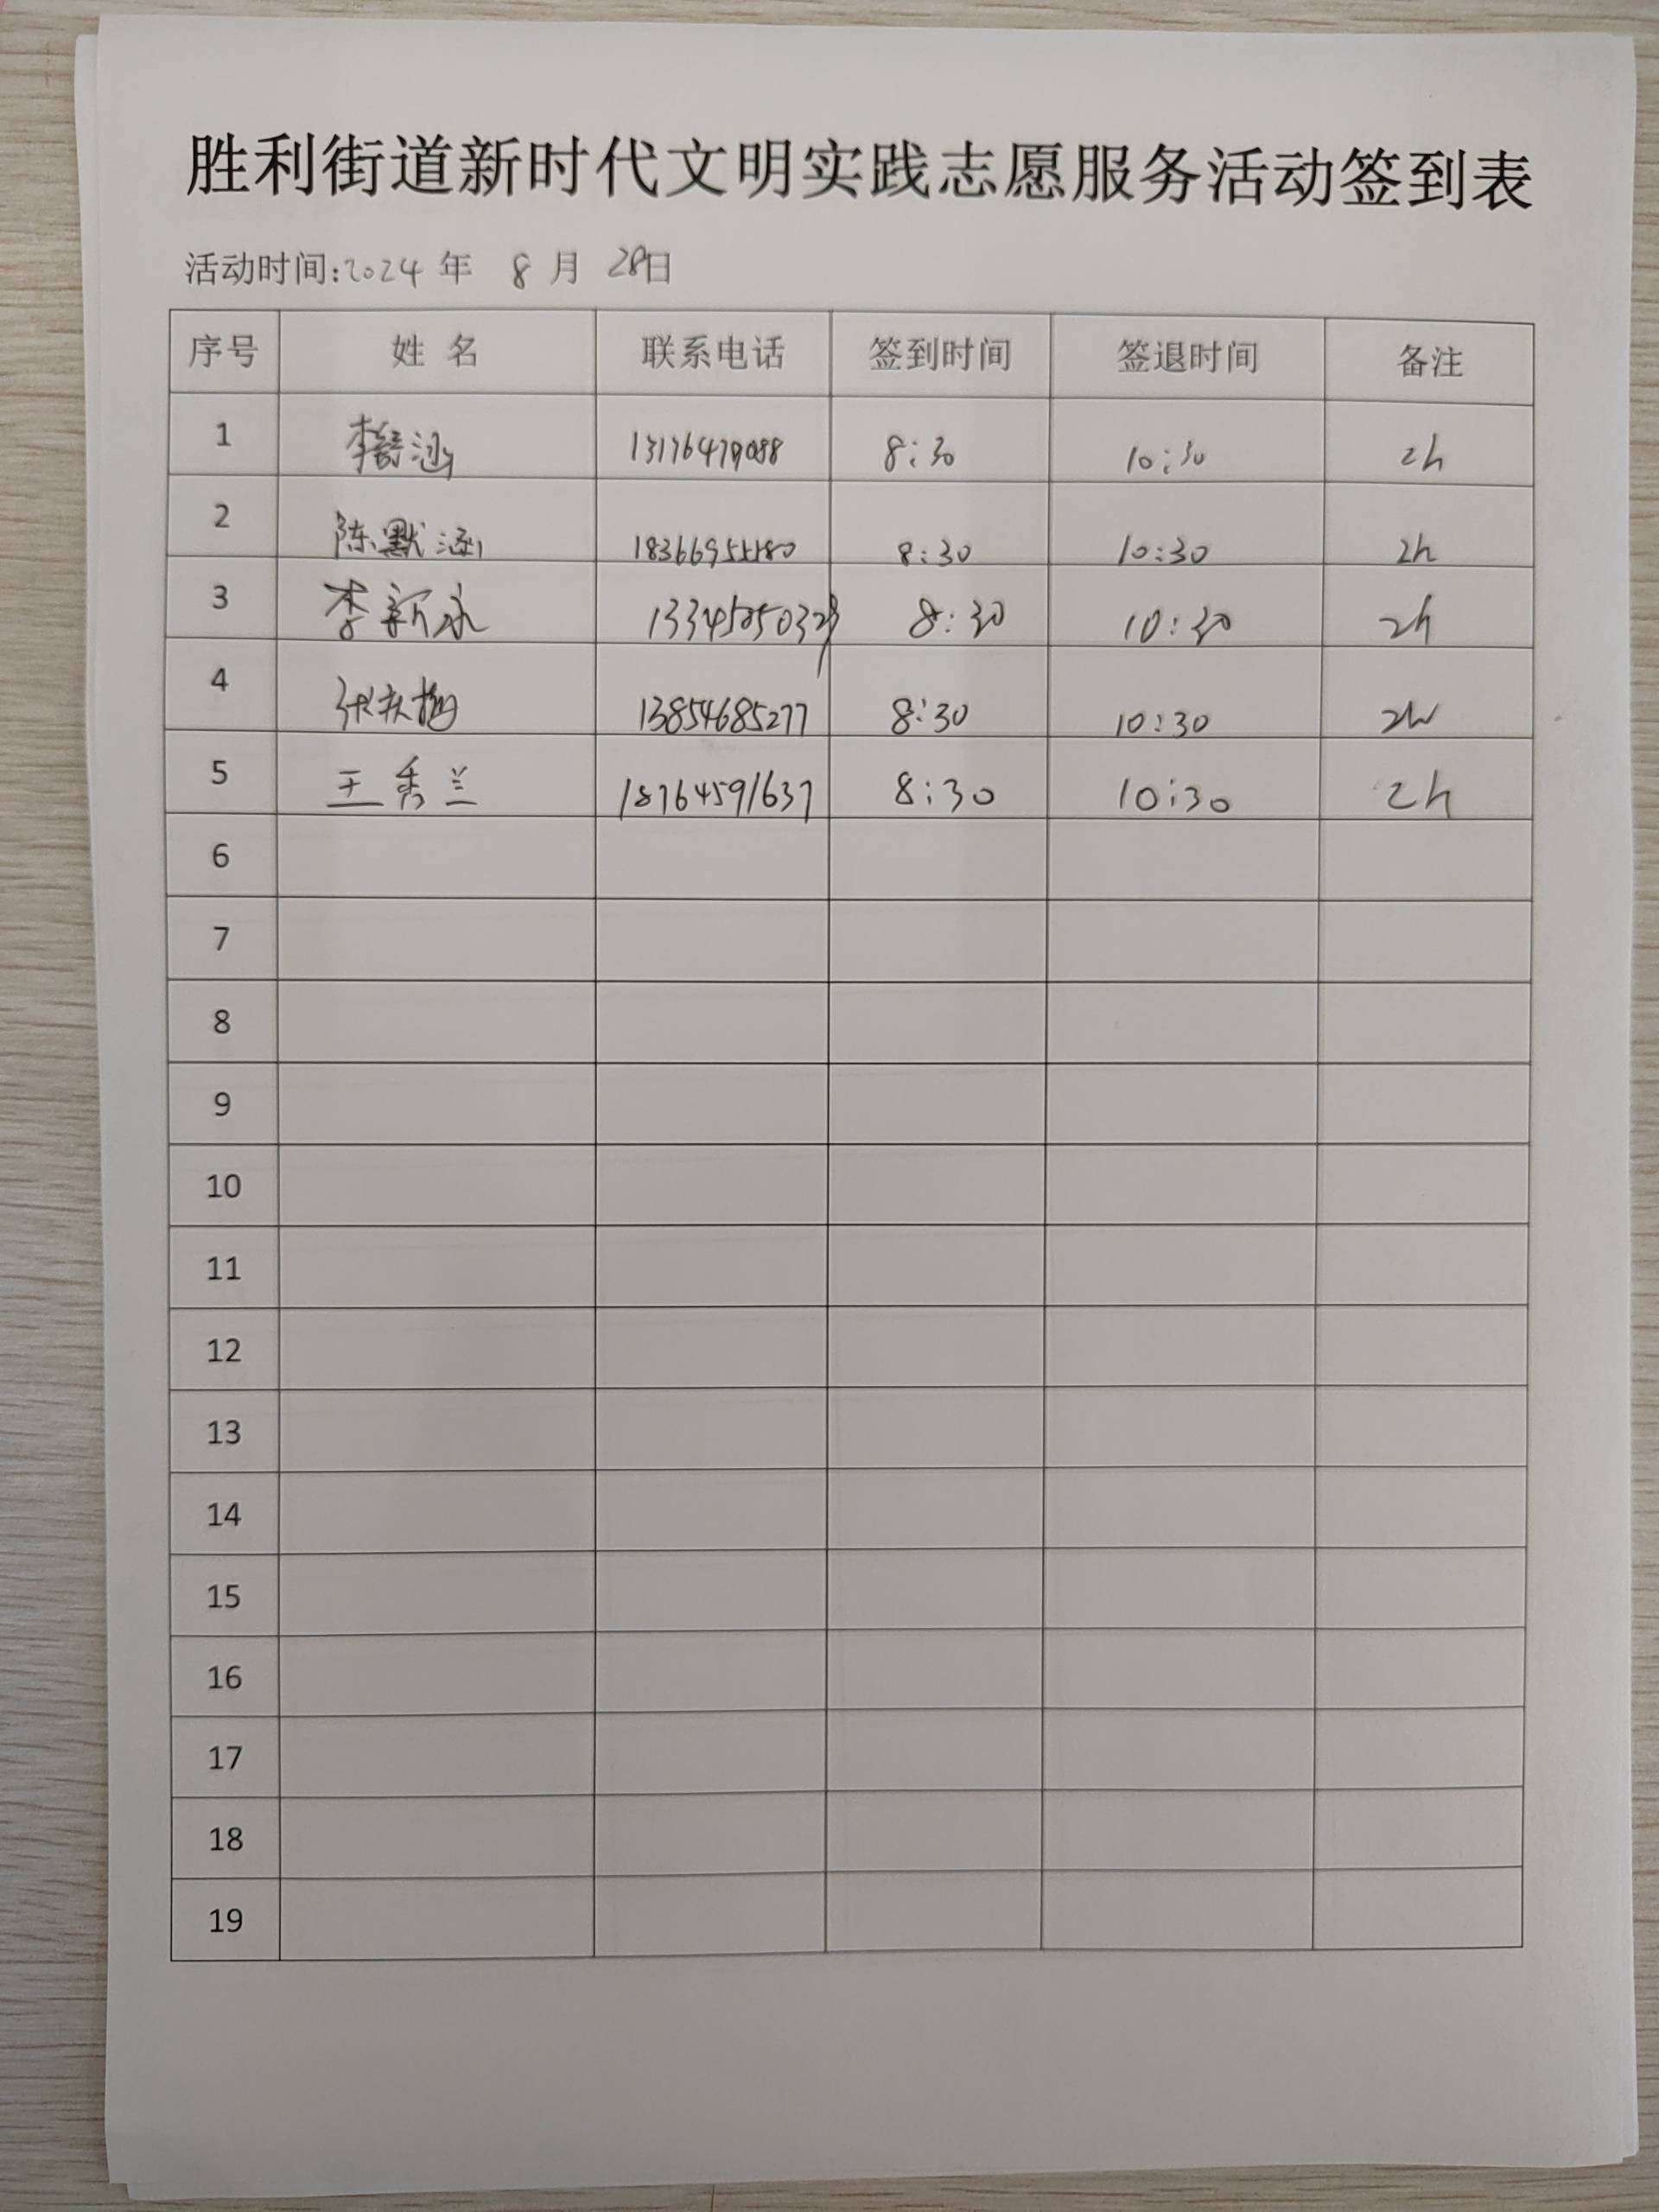 胜利街道新时代文明实践志愿服务活动签到表
活动时间:2024 年 8 月 28日
序号 姓 名 联系电话 签到时间 签退时间 备注
1 8:30 10:30 2h
2 陈默涵 18366955180 8:30 10:30 2h
3 李新永 8:30 10:30 2h
4 13854685277 8:30 10:30 2h
5 王秀兰 18764591637 8:30 10:30 2h
6
7
8
9
10
11
12
13
14
15
16
17
18
19